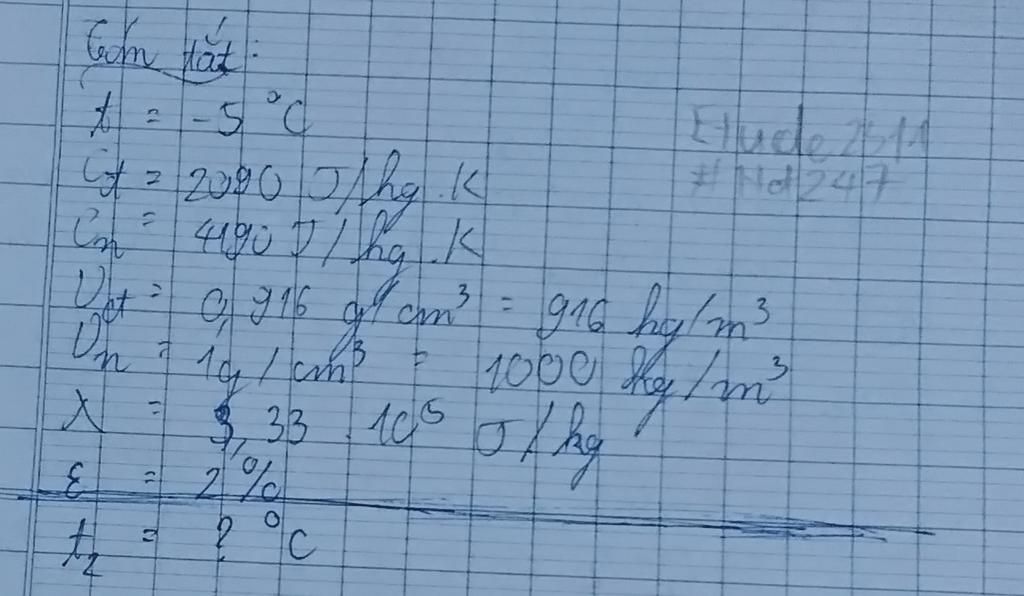 Tóm tắt:
t = -5 °C
Cđ = 2090 J/kg.K
Cn = 4190 J/kg.K
Dđ = 0,916 g/cm³ = 916 kg/m³
Dn = 1g/cm³ = 1000 kg/m³
λ = 3,33 . 10⁵ J/kg
ε = 2%
t₂ = ? °C
Etude2511
#Nd247